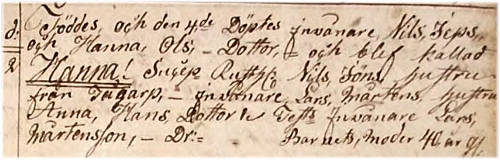 d. Föddes, och den 4de Döptes Inwånare Nils, Jeps,
och Hanna, Ols; - Dotter, - och blef kallad
2 Hanna! Suscp Rusth: Nils, Jöns hustru
från Tågarp, - Inwånare Lars, Mårtens, hustru
Anna, Hans, Dotter & Test: Inwånare Lars,
Mårtensson, - Dr:= Barnets, moder 40 år g/